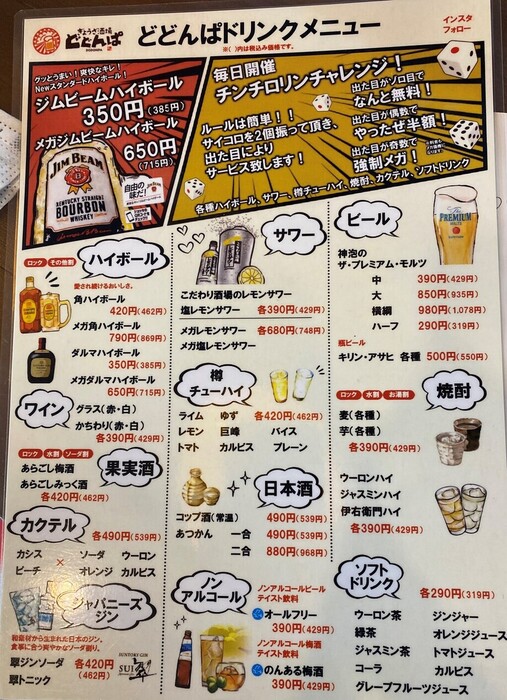 ぎょうざ酒場
どどんぱ
どどんぱドリンクメニュー
※( )内は税込み価格です。
インスタ
フォロー
グッとうまい!爽快なキレ!
Newスタンダードハイボール!
ジムビームハイボール
350円(385円)
メガジムビームハイボール
650円
(715円)
JIM BEAM
KENTUCKY STRAIGHT
BOURBON
WHISKEY
自由の
味だ!
毎日開催
チンチロリンチャレンジ!
ルールは簡単!!
サイコロを2個振って頂き、
出た目により
サービス致します!
出た目がゾロ目で
なんと無料!
出た目が偶数で
やったぜ半額!
出た目が奇数で
強制メガ!
各種ハイボール、サワー、樽チューハイ、焼酎、カクテル、ソフトドリンク
ロック その他割
ハイボール
愛され続けるおいしさ。
角ハイボール
420円(462円)
メガ角ハイボール
790円(869円)
ダルマハイボール
350円(385円)
メガダルマハイボール
650円(715円)
ワイン
グラス(赤・白)
かちわり(赤・白)
各390円(429円)
ロック 水割 ソーダ割
果実酒
あらごし梅酒
あらごしみっく酒
各420円(462円)
カクテル
各490円(539円)
カシス ソーダ ウーロン
×
ピーチ オレンジ カルピス
ジャパニーズ
ジン
和素材から生まれた日本のジン。
食事に合う爽やかなソーダ割り。
翠ジンソーダ
翠トニック
各420円
(462円)
SUNTORY GIN
SUI
翠
サワー
こだわり酒場のレモンサワー
塩レモンサワー 各390円(429円)
メガレモンサワー 各680円(748円)
メガ塩レモンサワー
樽
チューハイ
ライム ゆず 各420円(462円)
レモン 巨峰 バイス
トマト カルピス プレーン
日本酒
コップ酒(常温) 490円(539円)
あつかん 一合 490円(539円)
二合 880円(968円)
ノン
アルコール
ノンアルコールビール
テイスト飲料
オールフリー
390円(429円)
ノンアルコール梅酒
テイスト飲料
のんある梅酒
390円(429円)
ビール
The
PREMIUM
MALT'S
神泡の
ザ・プレミアム・モルツ
中 390円(429円)
大 850円(935円)
横綱 980円(1,078円)
ハーフ 290円(319円)
瓶ビール
キリン・アサヒ 各種 500円(550円)
ロック 水割 お湯割
焼酎
麦(各種)
芋(各種)
各390円(429円)
ウーロンハイ
ジャスミンハイ
伊右衛門ハイ
各390円(429円)
ソフト
ドリンク
各290円(319円)
ウーロン茶 ジンジャー
緑茶 オレンジジュース
ジャスミン茶 トマトジュース
コーラ カルピス
グレープフルーツジュース